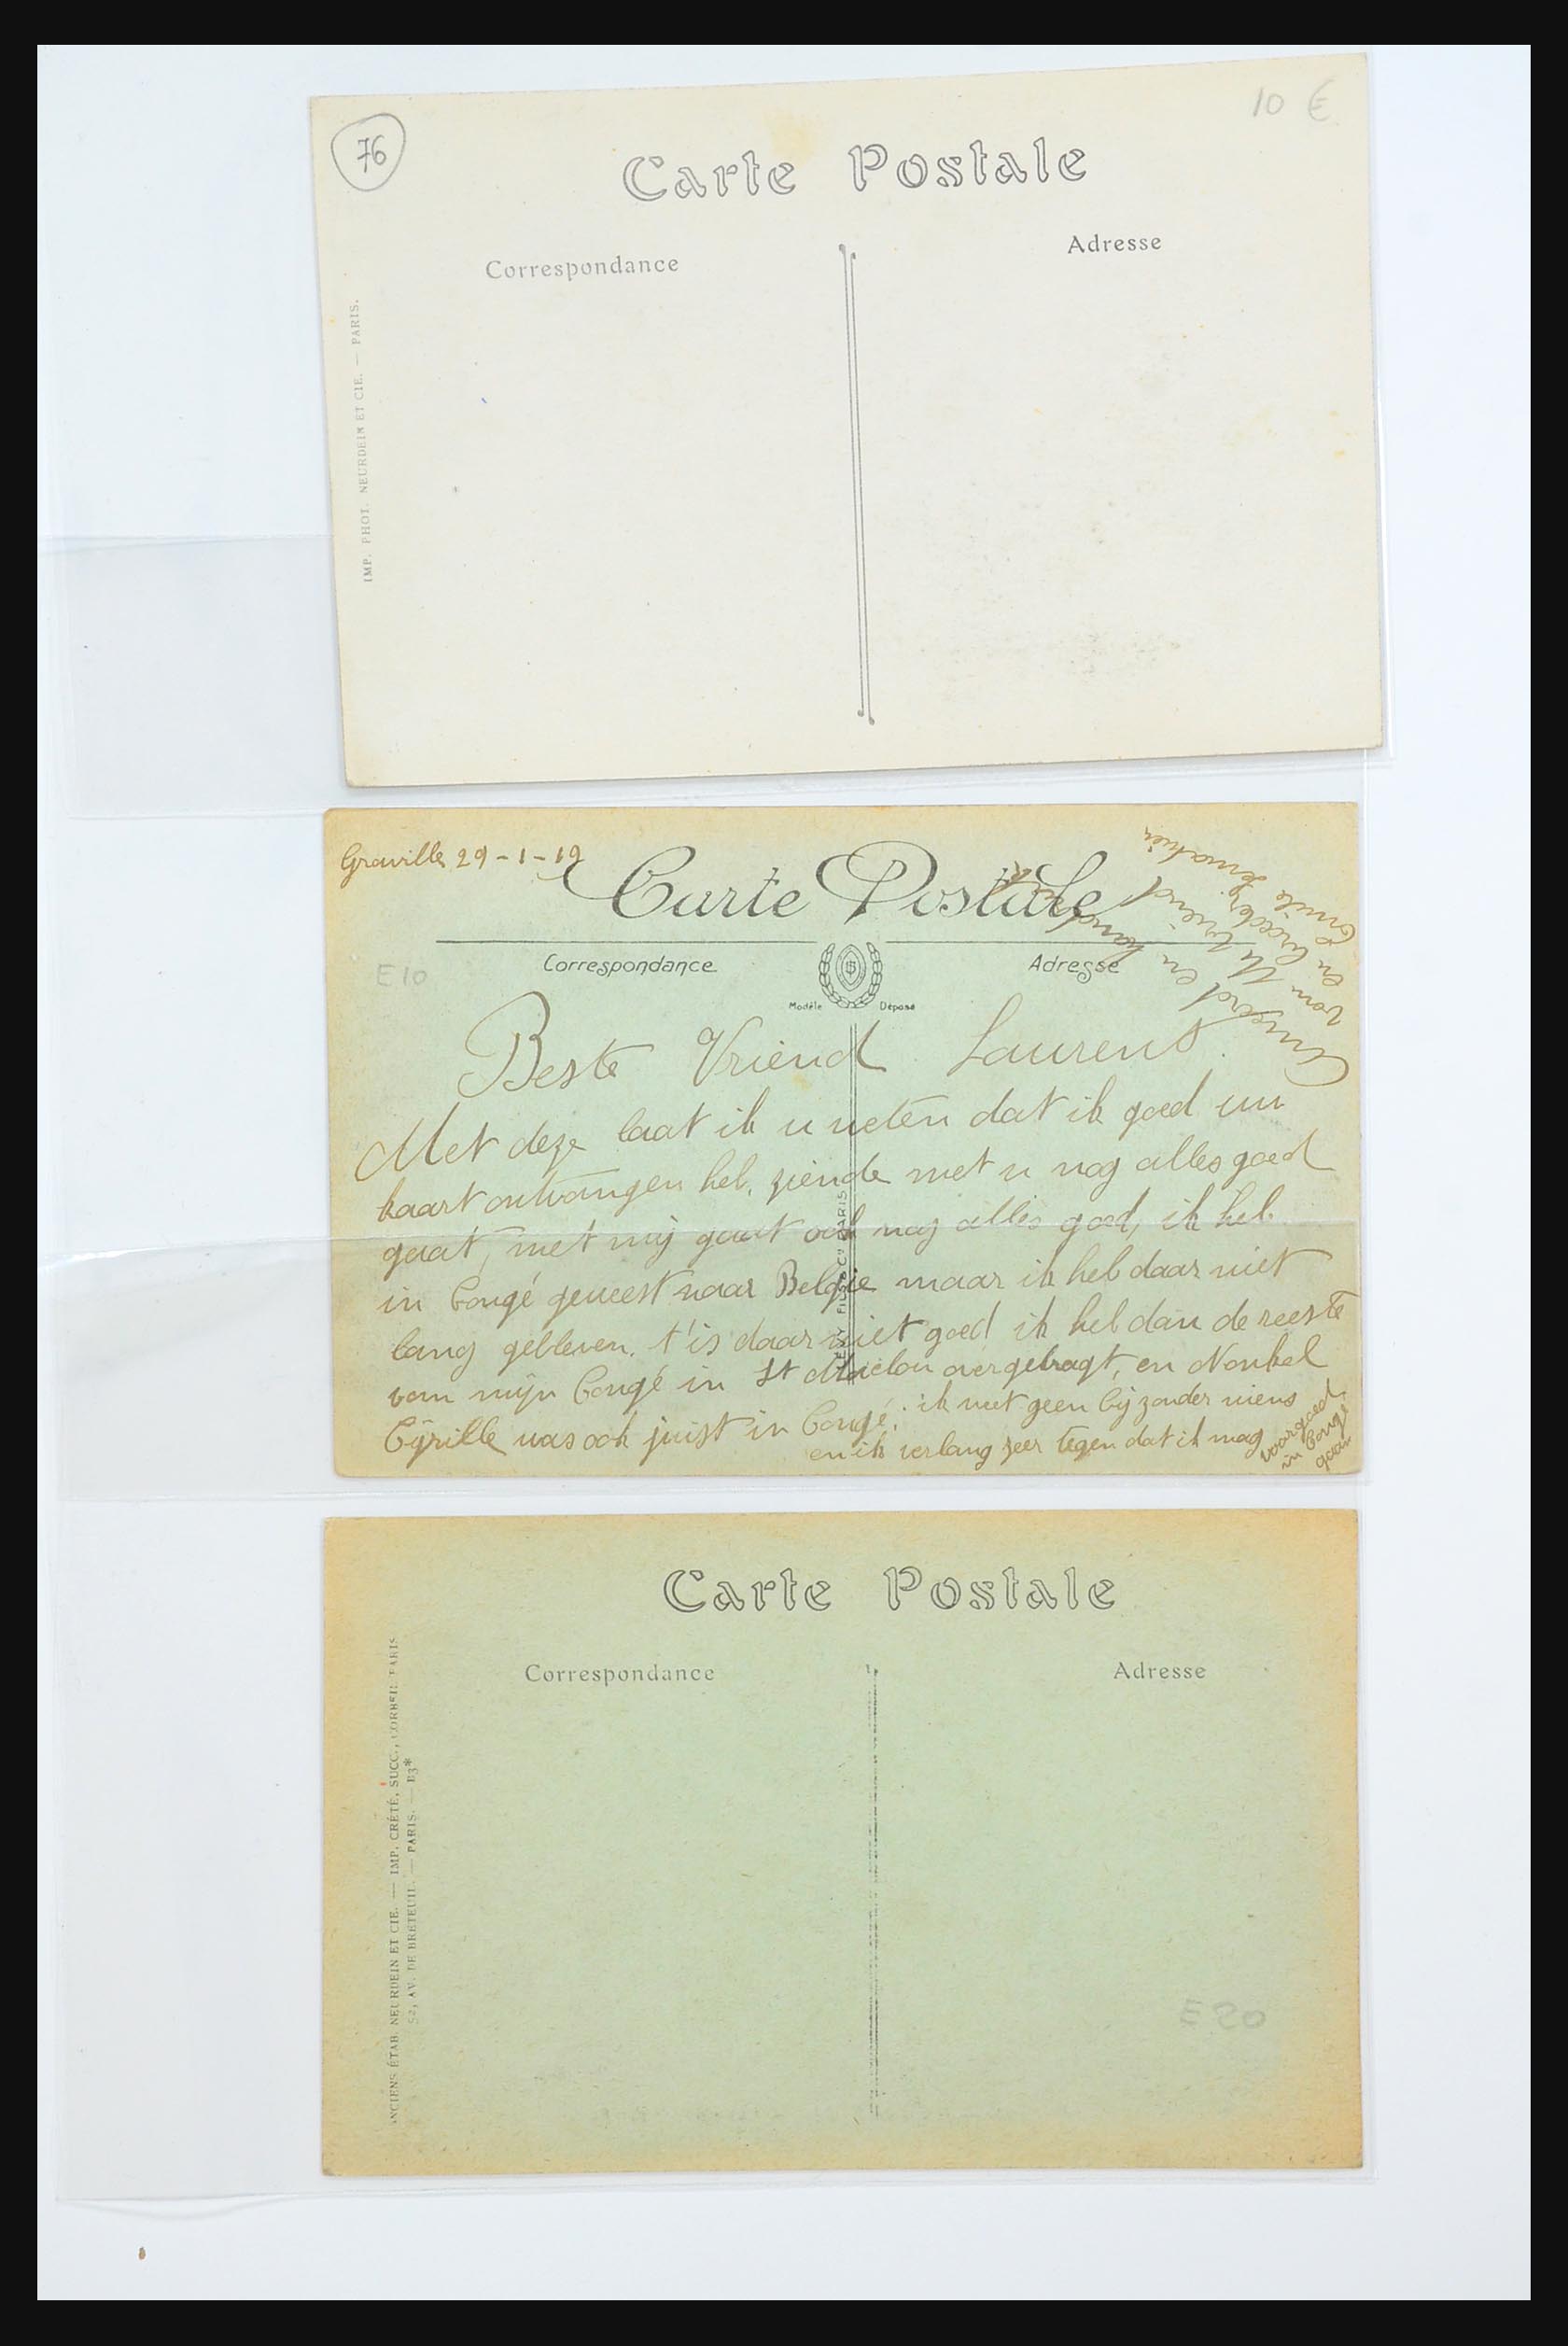 76
10 €
Carte Postale
Correspondance
Adresse
IMP. PHOT. NEURDEIN ET CIE. — PARIS.
Graville 29-1-19
Carte Postale
Correspondance
Adresse
E10
Modèle Déposé
Beste Vriend Laurent.
Met deze laat ik u weten dat ik goed uw
kaart ontvangen heb, ziende met u nog alles goed
gaat, met mij gaat ook nog alles goed, ik heb
in Congé geweest naar Belgie maar ik heb daar niet
lang gebleven. t'is daar niet goed ik heb dan de reeste
van mijn Congé in St overgebragt, en Nonkel
Cyrille was ook juist in Congé; ik weet geen bijzonder niews
en ik verlang zeer tegen dat ik mag
voorgoed
in Congé
gaan
en hand
van U Vriend
en broeder
Emile
Carte Postale
Correspondance
Adresse
ANCIENS ÉTAB. NEURDEIN ET CIE. — IMP. CRÉTÉ, SUCC., CORBEIL PARIS
52, AV. DE BRETEUIL. — PARIS. — B3*
E20